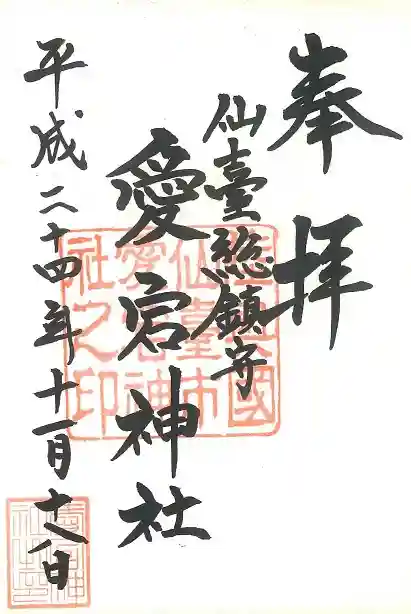 奉拝
仙臺総鎮守
愛宕神社
平成二十四年十一月十八日
國
仙臺市
愛宕神
社之印